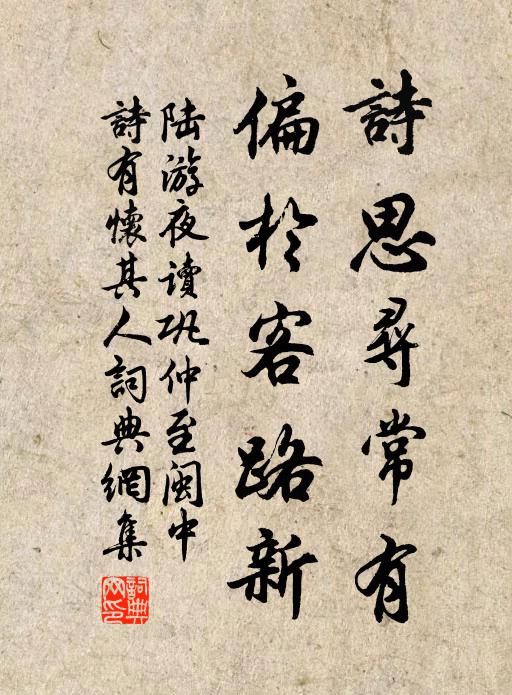 詩思尋常有
偏於客路新
陆游夜读巩仲至闽中
詩有懷其人詞典網集
詞典网印